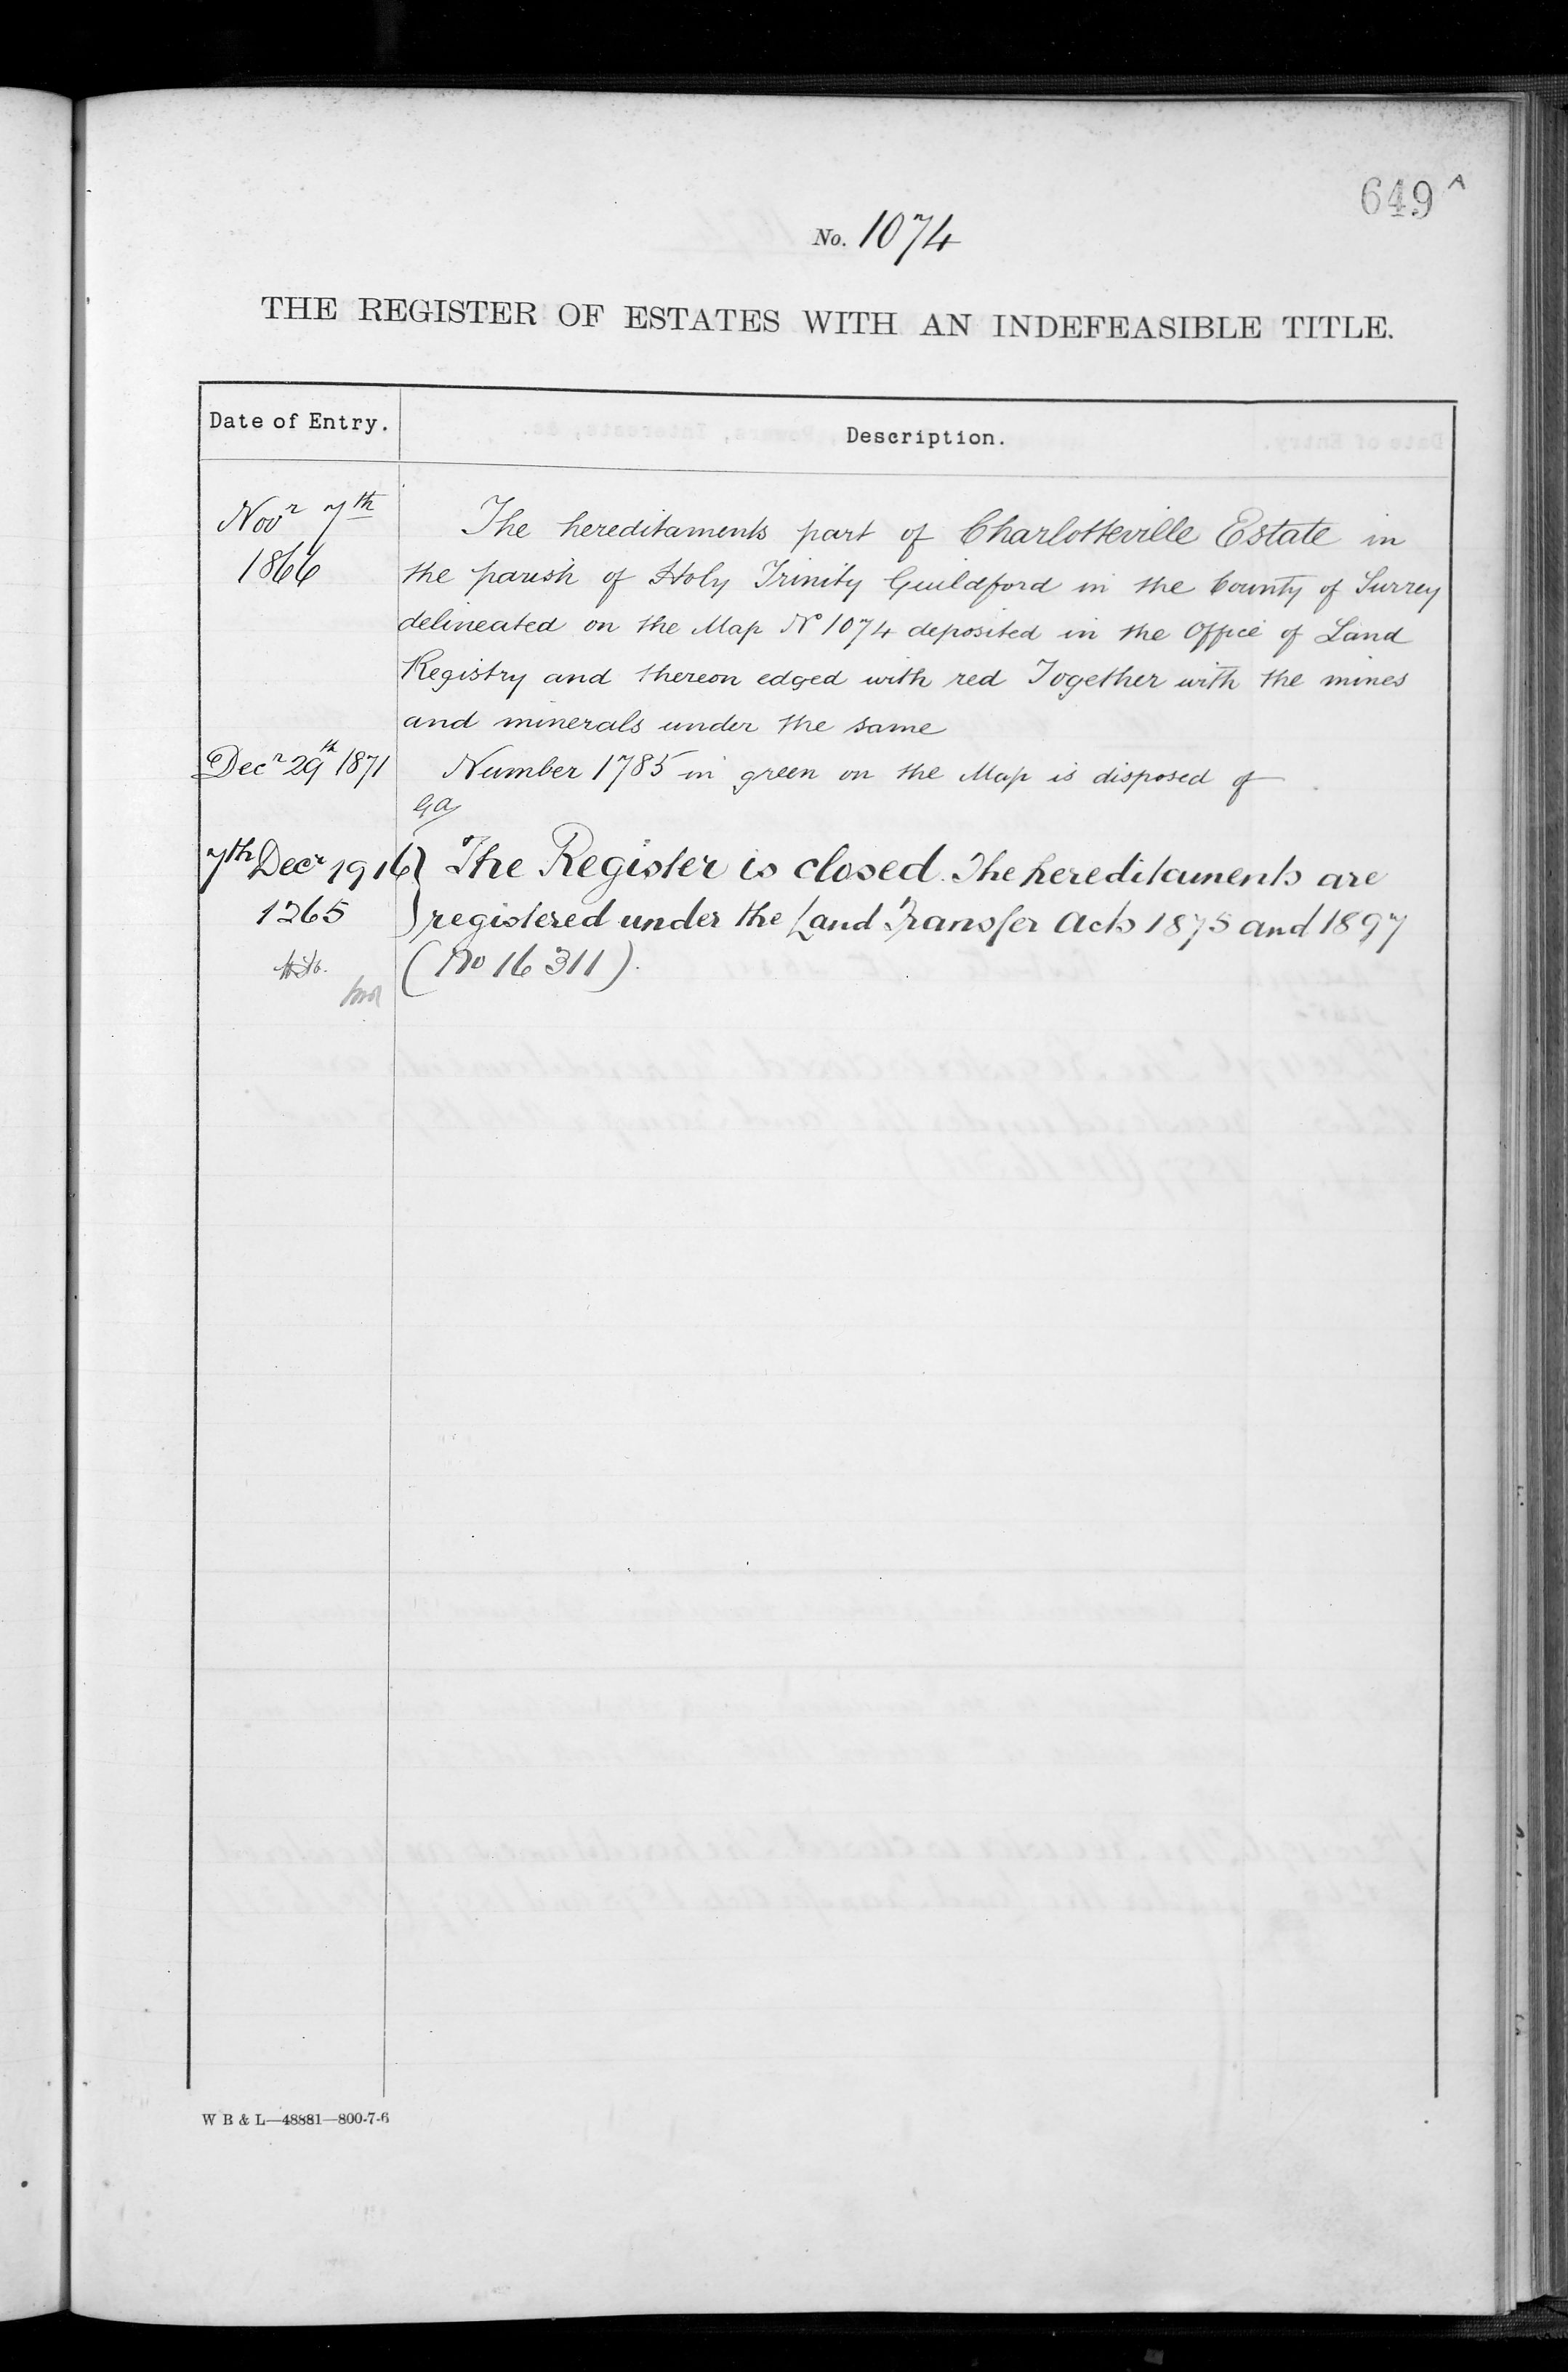 649 A
No. 1074
THE REGISTER OF ESTATES WITH AN INDEFEASIBLE TITLE.
Date of Entry. Description.
Novr 7th The hereditaments part of Charlotteville Estate in
1866 the parish of Holy Trinity Guildford in the County of Surrey
delineated on the Map No 1074 deposited in the Office of Land
Registry and thereon edged with red Together with the mines
and minerals under the same
Decr 29th 1871 Number 1785 in green on the Map is disposed of
GA
7th Decr 1916 } The Register is closed. The hereditaments are
1265 } registered under the Land Transfer Acts 1875 and 1897
(No 16311).
W B & L—48881—800-7-6